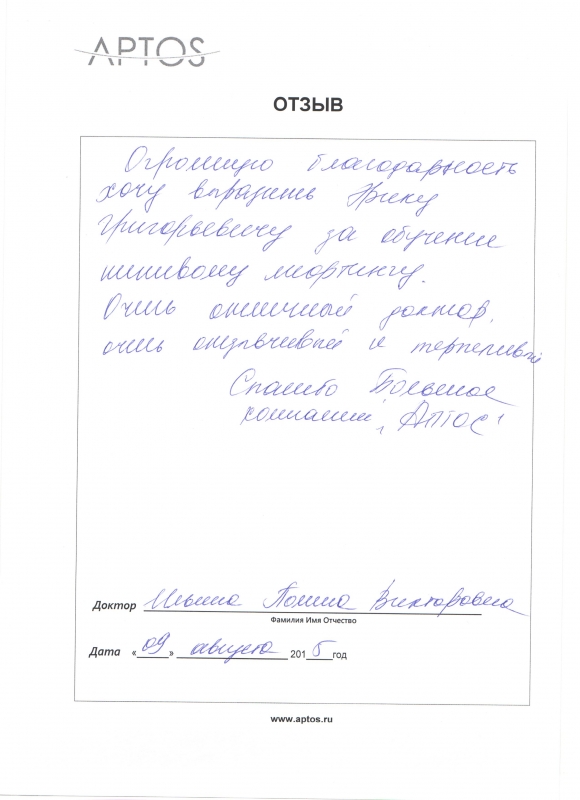 APTOS
ОТЗЫВ
Огромную благодарность
хочу выразить Эрику
Григорьевичу за обучение
нитивому лифтингу.
Очень отличный доктор,
очень отзывчивый и терпеливый
Спасибо Большое
компании "АПТОС"
Доктор Ильина Полина Викторовна
Фамилия Имя Отчество
Дата «09» августа 2015 год
www.aptos.ru